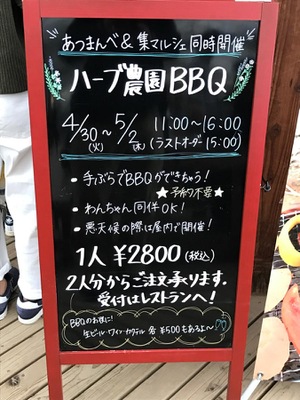 あつまんべ&集マルシェ同時開催
ハーブ農園BBQ
4/30(火)~5/2(木) 11:00~16:00
(ラストオーダー15:00)
・手ぶらでBBQができちゃう!
★予約不要★
・わんちゃん同伴OK!
・悪天候の際は屋内で開催!
1人 ¥2800(税込)
2人分からご注文承ります。
受付はレストランへ!
BBQのお供に!
生ビール・ワイン・カクテル 各¥500もあるよ~